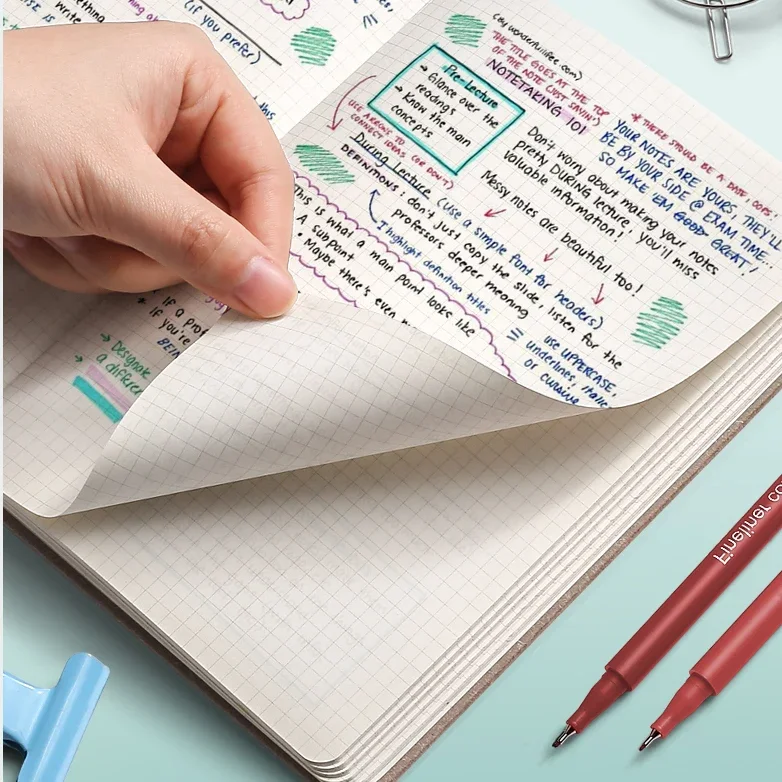 (if you prefer)
this
(by wonderfullifee.com)
THE TITLE GOES AT THE TOP
OF THE NOTE (JUST SAYIN')
NOTETAKING 101
* THERE SHOULD BE A DATE, OOPS!
YOUR NOTES ARE YOURS, THEY'LL
BE BY YOUR SIDE @ EXAM TIME...
SO MAKE 'EM GOOD GREAT!
Pre-Lecture
→ Glance over the
readings
→ Know the main
concepts
Don't worry about making your notes
pretty DURING lecture, you'll miss
valuable information!
Messy notes are beautiful too!
(USE ARROWS TO
CONNECT IDEAS (OR DON'T)
During Lecture (use a simple font for headers)
DEFINITIONS: don't just copy the slide, listen for the
professors deeper meaning
I highlight definition titles
use UPPERCASE,
underlines, italic
or cursive
This is what a main point looks like
• A subpoint
• Maybe there's even
If a prof
If you're
BEIN
→ Designate
→ a differen
Fineliner co